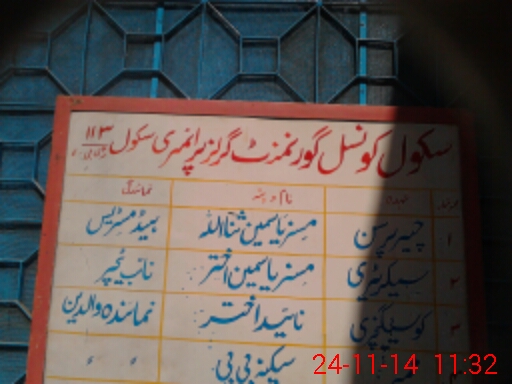 سکول کونسل گورنمنٹ گرلز پرائمری سکول ۱۱۳
نمبر عہدہ نام و پتہ نمائندگی
۱ چیئر پرسن مسز یاسمین ثناءاللہ ہیڈ مسٹریس
۲ سیکرٹری مسز یاسمین اختر نائب ٹیچر
۳ کو سیکٹری ناہید اختر نمائندہ والدین
سکینہ بی بی 〃 〃
24-11-14 11:32